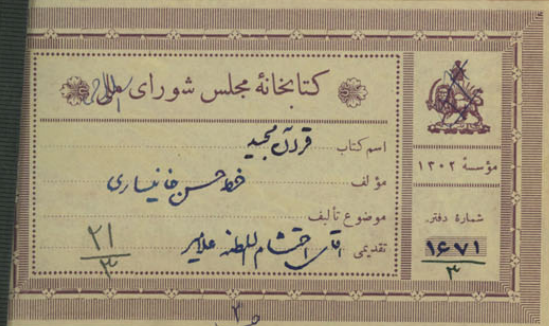 کتابخانهٔ مجلس شورای اسلامی
مؤسسهٔ ۱۳۰۲
اسم کتاب قرآن مجید
مؤلف خط حسن خانیساری
موضوع تألیف
تقدیمی آقای احتشام السلطنه علامیر
۲۱
۳
شمارهٔ دفتر
۱۶۷۱
۳
۳